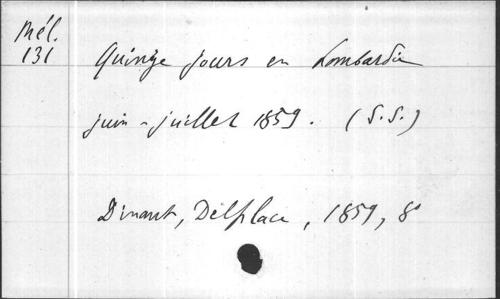 Mél.
131
Quinze jours en Lombardie
juin - juillet 1859. (S.S.)
Dinant, Delplace, 1859, 8°